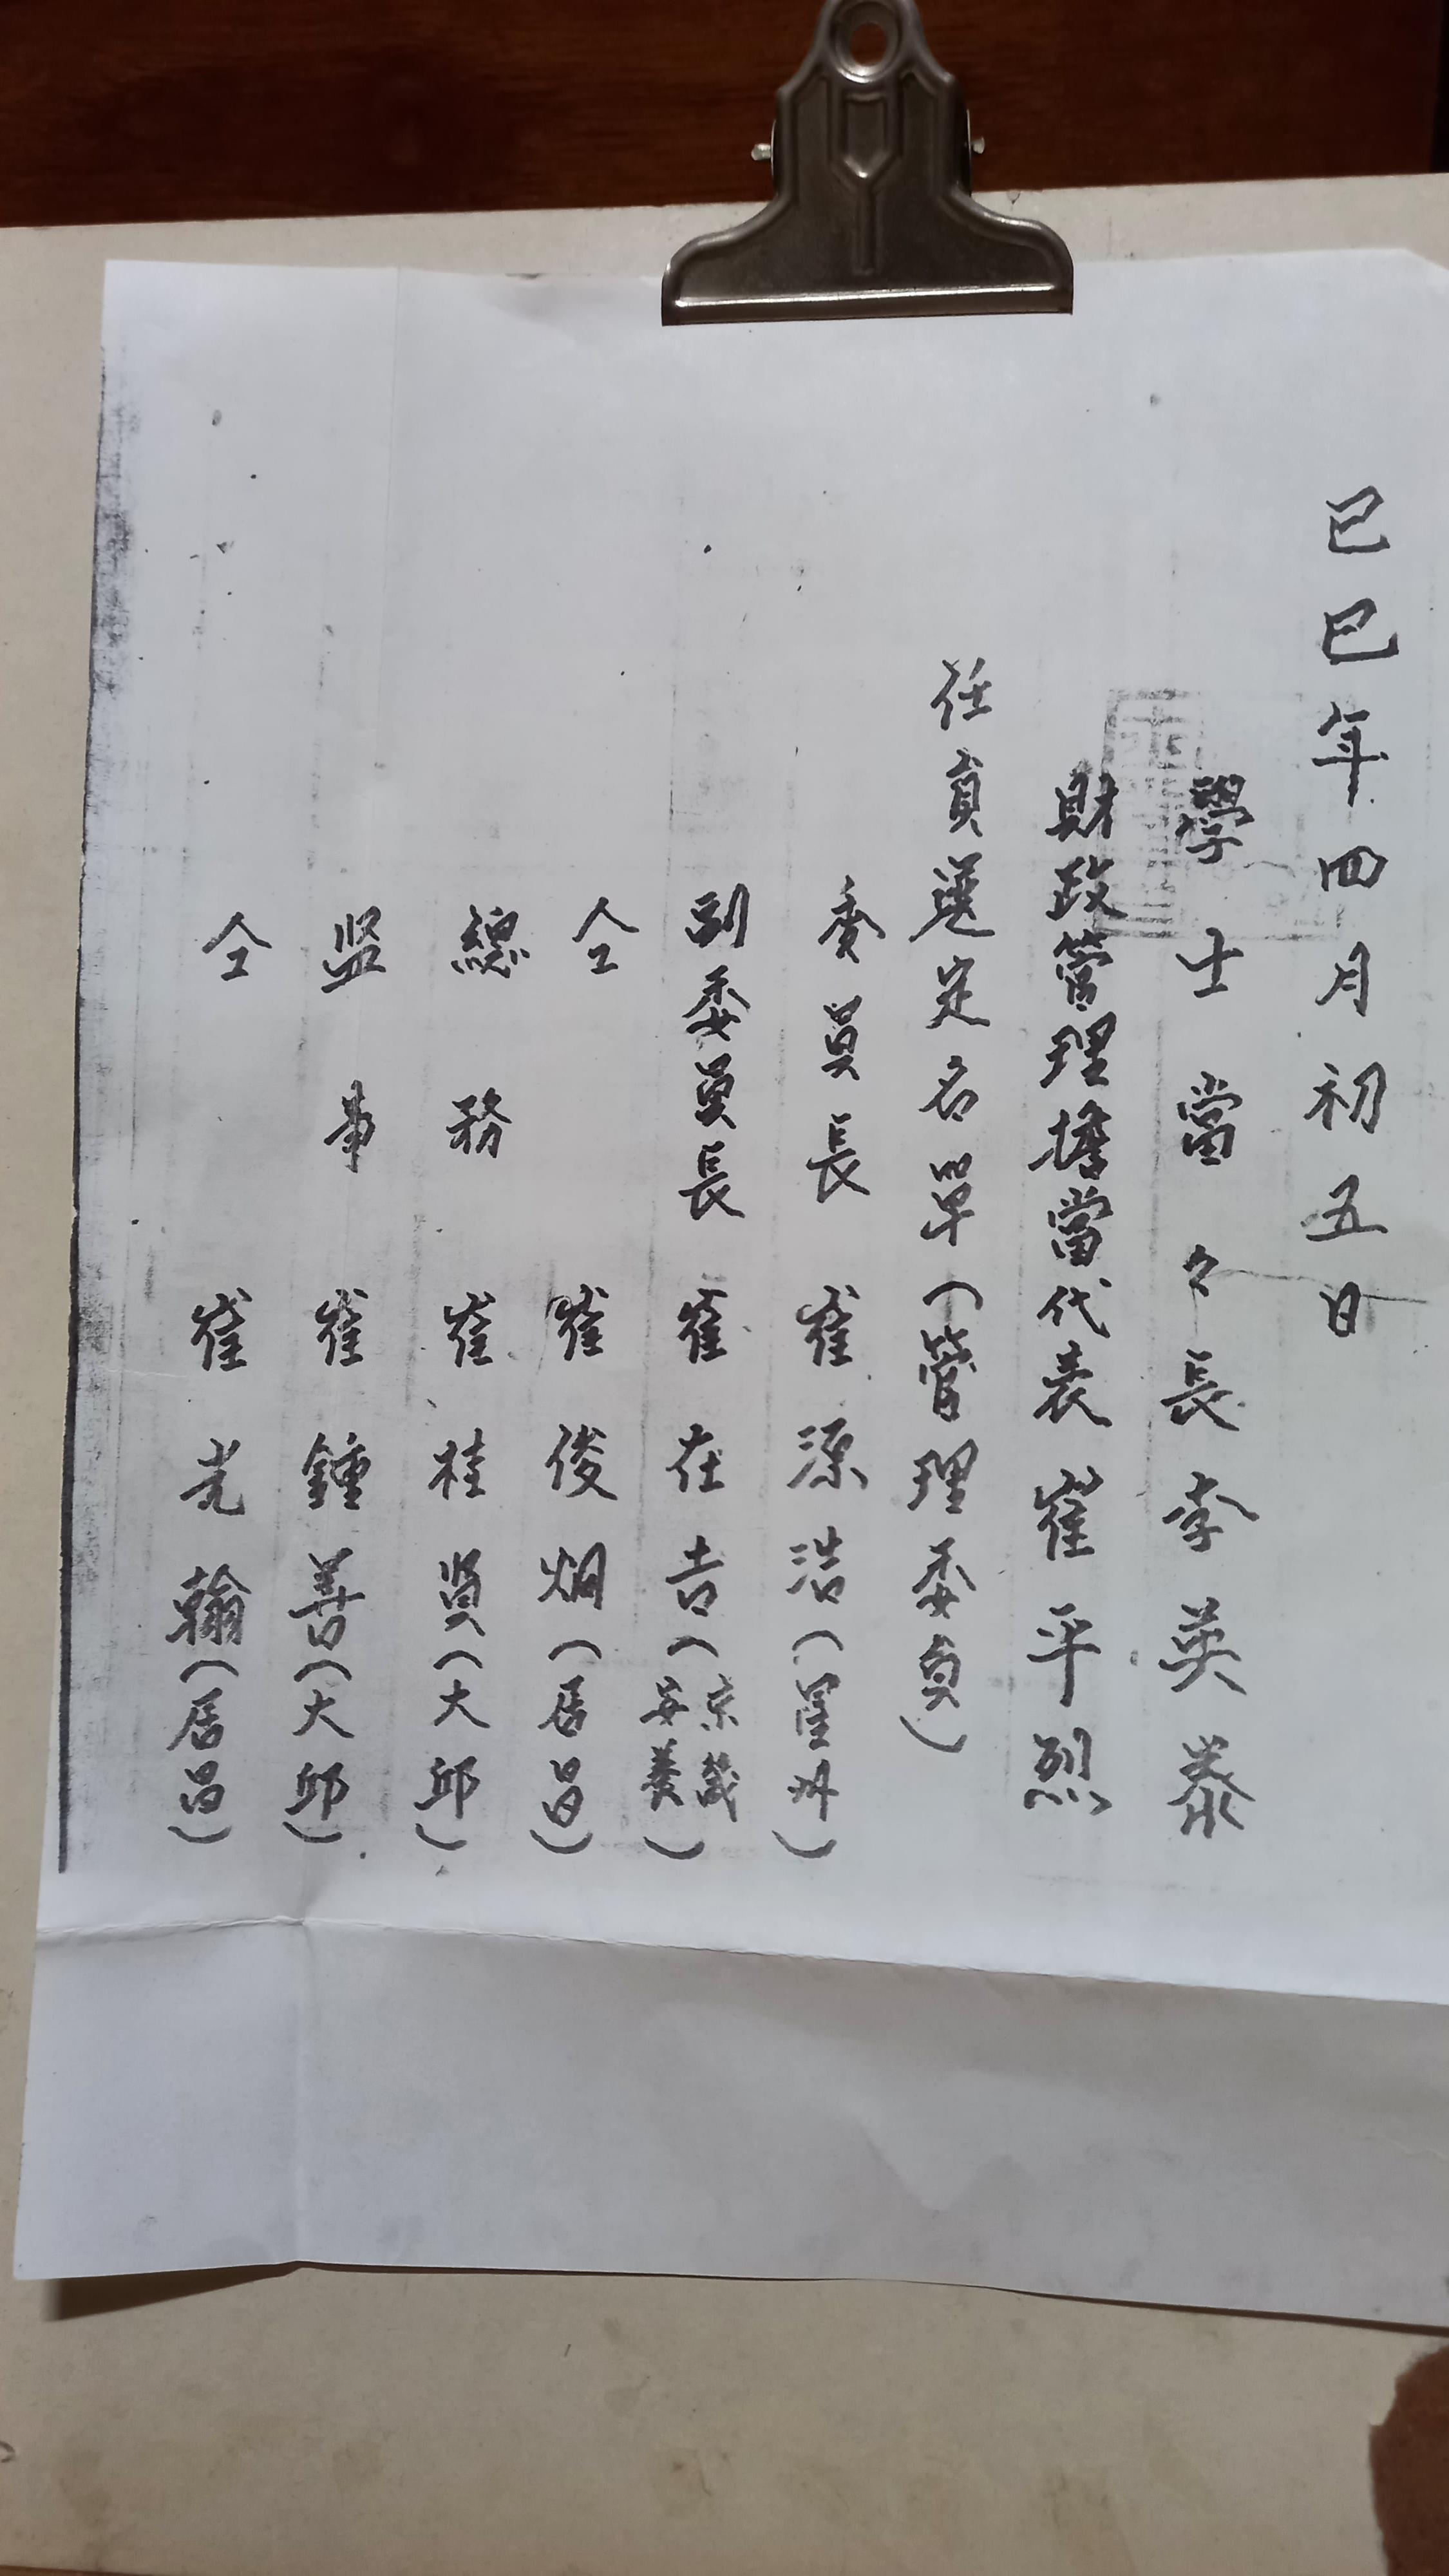 己巳年四月初五日
學士當々長李英泰
財政管理擔當代表崔平烈
任員選定名單(管理委員)
委員長 崔源浩(星州)
副委員長 崔在吉(京畿安養)
仝 崔俊炯(居昌)
總務 崔桂賢(大邱)
監事 崔鍾善(大邱)
仝 崔光翰(居昌)